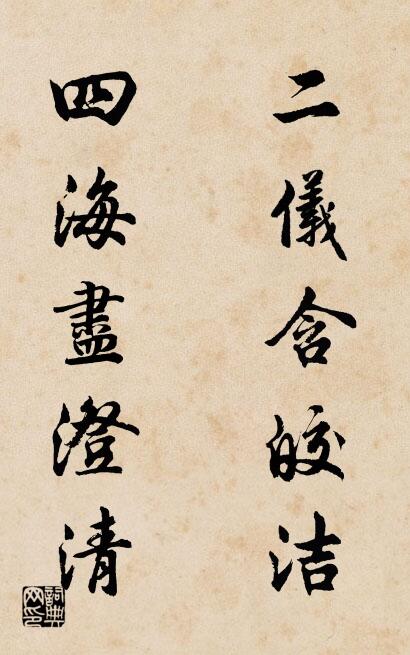 二儀含皎洁
四海盡澄清
詞典网印